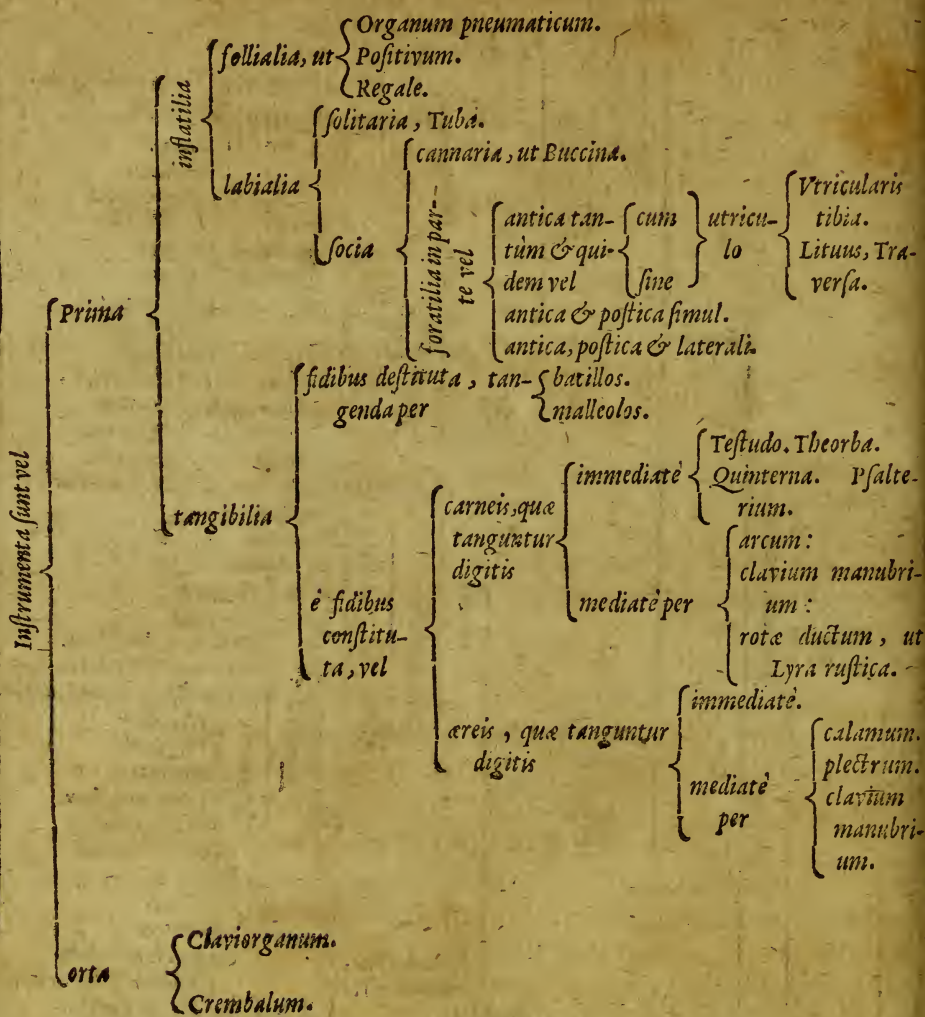 Instrumenta ſunt vel
Prima
inflatilia
follialia, ut
Organum pneumaticum.
Poſitivum.
Regale.
labialia
ſolitaria, Tuba.
ſocia
cannaria, ut Buccina.
foratilia in par-
te vel
antica tan-
tùm & qui-
dem vel
cum
ſine
utricu-
lo
Vtricularis
tibia.
Lituus, Tra-
verſa.
antica & poſtica ſimul.
antica, poſtica & laterali.
tangibilia
fidibus deſtituta, tan-
genda per
batillos.
malleolos.
è fidibus
conſtitu-
ta, vel
carneis, quæ
tanguntur
digitis
immediatè
Teſtudo. Theorba.
Quinterna. Pſalte-
rium.
mediatè per
arcum:
clavium manubri-
um:
rotæ ductum, ut
Lyra ruſtica.
æreis, quæ tanguntur
digitis
immediatè.
mediatè
per
calamum.
plectrum.
clavium
manubri-
um.
orta
Claviorganum.
Crembalum.